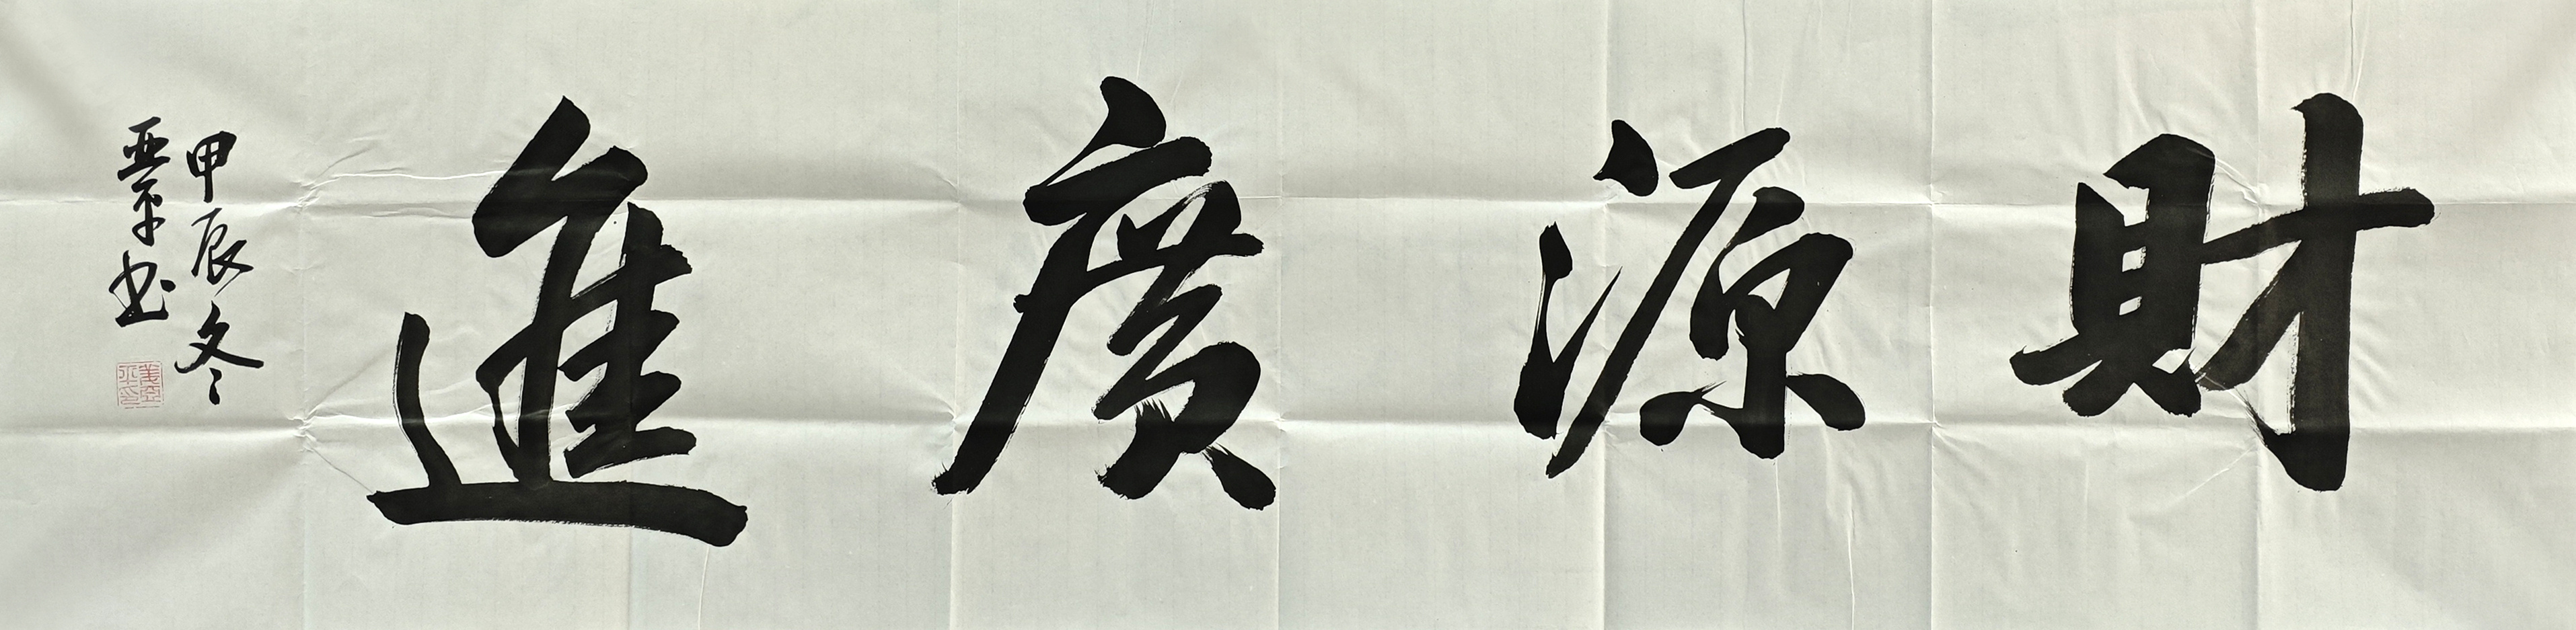 財源廣進
甲辰冬
亚平书